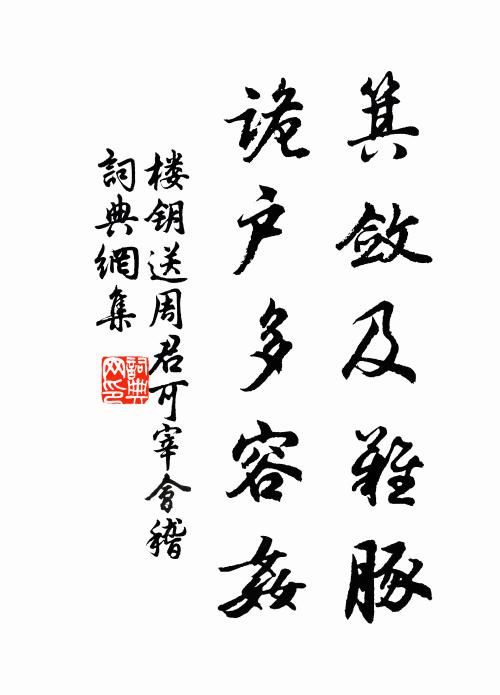 箕斂及雞豚
詭户多容姦
楼钥送周君可宰會稽
詞典網集
詞典網印